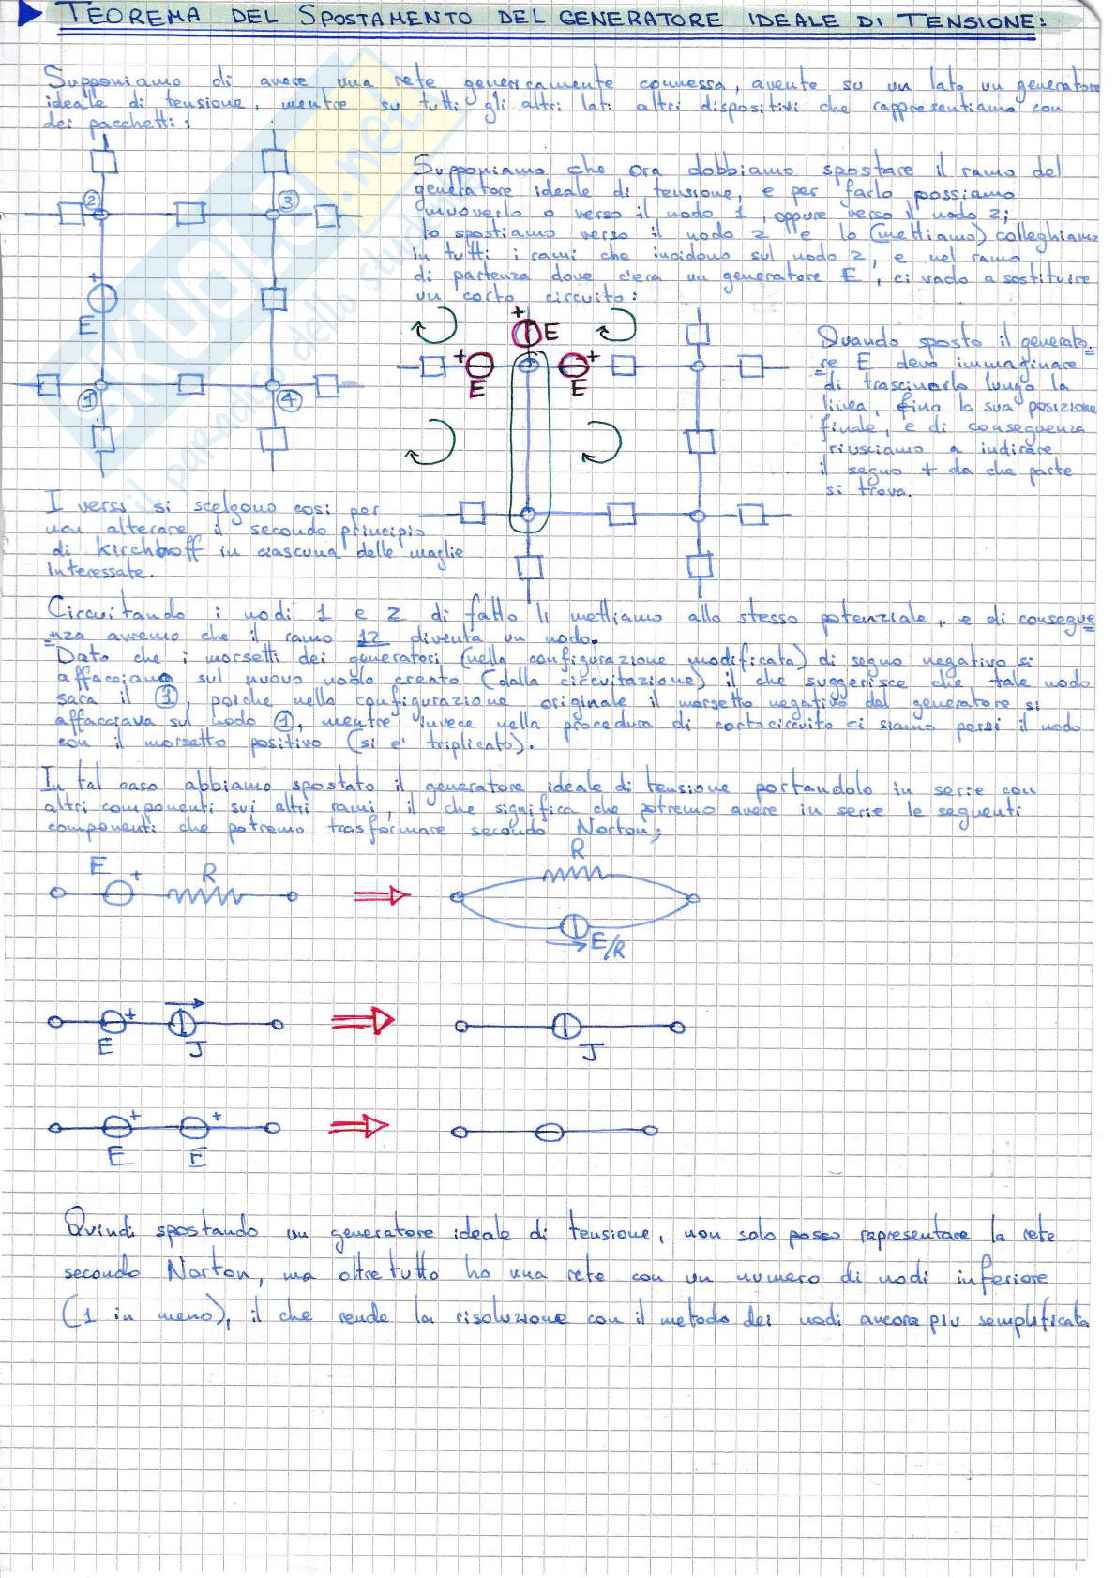 TEOREMA DEL SPOSTAMENTO DEL GENERATORE IDEALE DI TENSIONE:
Supponiamo di avere una rete genericamente connessa, avente su un lato un generatore
ideale di tensione, mentre su tutti gli altri lati altri dispositivi che rappresentiamo con
dei pacchetti:
Supponiamo che ora dobbiamo spostare il ramo del
generatore ideale di tensione, e per farlo possiamo
muoverlo o verso il nodo 1, oppure verso il nodo 2;
lo spostiamo verso il nodo 2 e lo (mettiamo) colleghiamo
in tutti i rami che incidono sul nodo 2, e nel ramo
di partenza dove c'era un generatore E, ci vado a sostituire
un corto circuito:
2
3
+
E
1
4
+
E
+
E
+
E
Quando sposto il generato=
=re E devo immaginare
di trascinarlo lungo la
linea, fino la sua posizione
finale, e di conseguenza
riusciamo a indirare
il segno + da che parte
si trova.
I versi si scelgono così per
non alterare il secondo principio
di Kirchhoff in ciascuna delle maglie
interessate.
Circuitando i nodi 1 e 2 di fatto li mettiamo allo stesso potenziale, e di consegue=
=nza avremo che il ramo 12 diventa un nodo.
Dato che i morsetti dei generatori (nella configurazione modificata) di segno negativo si
affacciano sul nuovo nodo creato (dalla circuitazione) il che suggerisce che tale nodo
sarà il 1, poiché nella configurazione originale il morsetto negativo del generatore si
affacciava sul nodo 1, mentre invece nella procedura di cortocircuito ci siamo persi il nodo
con il morsetto positivo (si è triplicato).
In tal caso abbiamo spostato il generatore ideale di tensione portandolo in serie con
altri componenti sui altri rami, il che significa che potremo avere in serie le seguenti
componenti che potremo trasformare secondo Norton;
E + R
R
E/R
+
E J
J
+ +
E E
Quindi spostando un generatore ideale di tensione, non solo posso rapresentare la rete
secondo Norton, ma oltretutto ho una rete con un numero di nodi inferiore
(1 in meno), il che rende la risoluzione con il metodo dei nodi ancora più semplificata